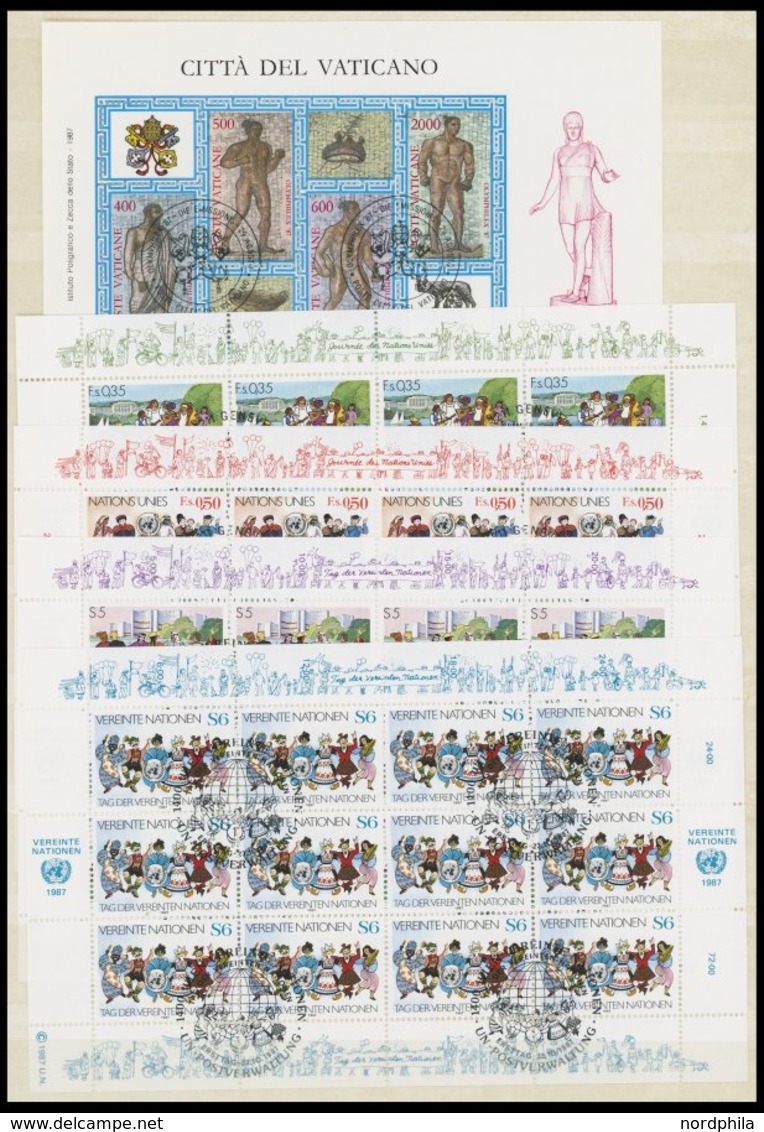 CITTÀ DEL VATICANO
Istituto Poligrafico e Zecca dello Stato - 1987
500
2000
POSTE VATICANE
OLYMPHILEX '87
POSTE VATICANE
OLYMPHILEX '87
400
600
POSTE VATICANE
POSTE VATICANE
Journée des Nations Unies
F.s. 0,35
F.s. 0,35
F.s. 0,35
F.s. 0,35
1,4
Journée des Nations Unies
NATIONS UNIES F.s. 0,50
NATIONS UNIES F.s. 0,50
NATIONS UNIES F.s. 0,50
NATIONS UNIES F.s. 0,50
10:00
15:00
20:00
Tag der Vereinten Nationen
S5
S5
S5
S5
6:00
12:00
18:00
24:00
Tag der Vereinten Nationen
VEREINTE NATIONEN S6
VEREINTE NATIONEN S6
VEREINTE NATIONEN S6
VEREINTE NATIONEN S6
24·00
TAG DER VEREINTEN NATIONEN
TAG DER VEREINTEN NATIONEN
TAG DER VEREINTEN NATIONEN
TAG DER VEREINTEN NATIONEN
VEREINTE NATIONEN S6
VEREINTE NATIONEN S6
VEREINTE NATIONEN S6
VEREINTE NATIONEN S6
VEREINTE
NATIONEN
1987
VEREINTE
NATIONEN
1987
TAG DER VEREINTEN NATIONEN
TAG DER VEREINTEN NATIONEN
TAG DER VEREINTEN NATIONEN
TAG DER VEREINTEN NATIONEN
VEREINTE NATIONEN S6
VEREINTE NATIONEN S6
VEREINTE NATIONEN S6
VEREINTE NATIONEN S6
72·00
TAG DER VEREINTEN NATIONEN
TAG DER VEREINTEN NATIONEN
TAG DER VEREINTEN NATIONEN
TAG DER VEREINTEN NATIONEN
UN POSTVERWALTUNG
UN POSTVERWALTUNG
© 1987 U.N.
Tag der Vereinten Nationen
nordphila